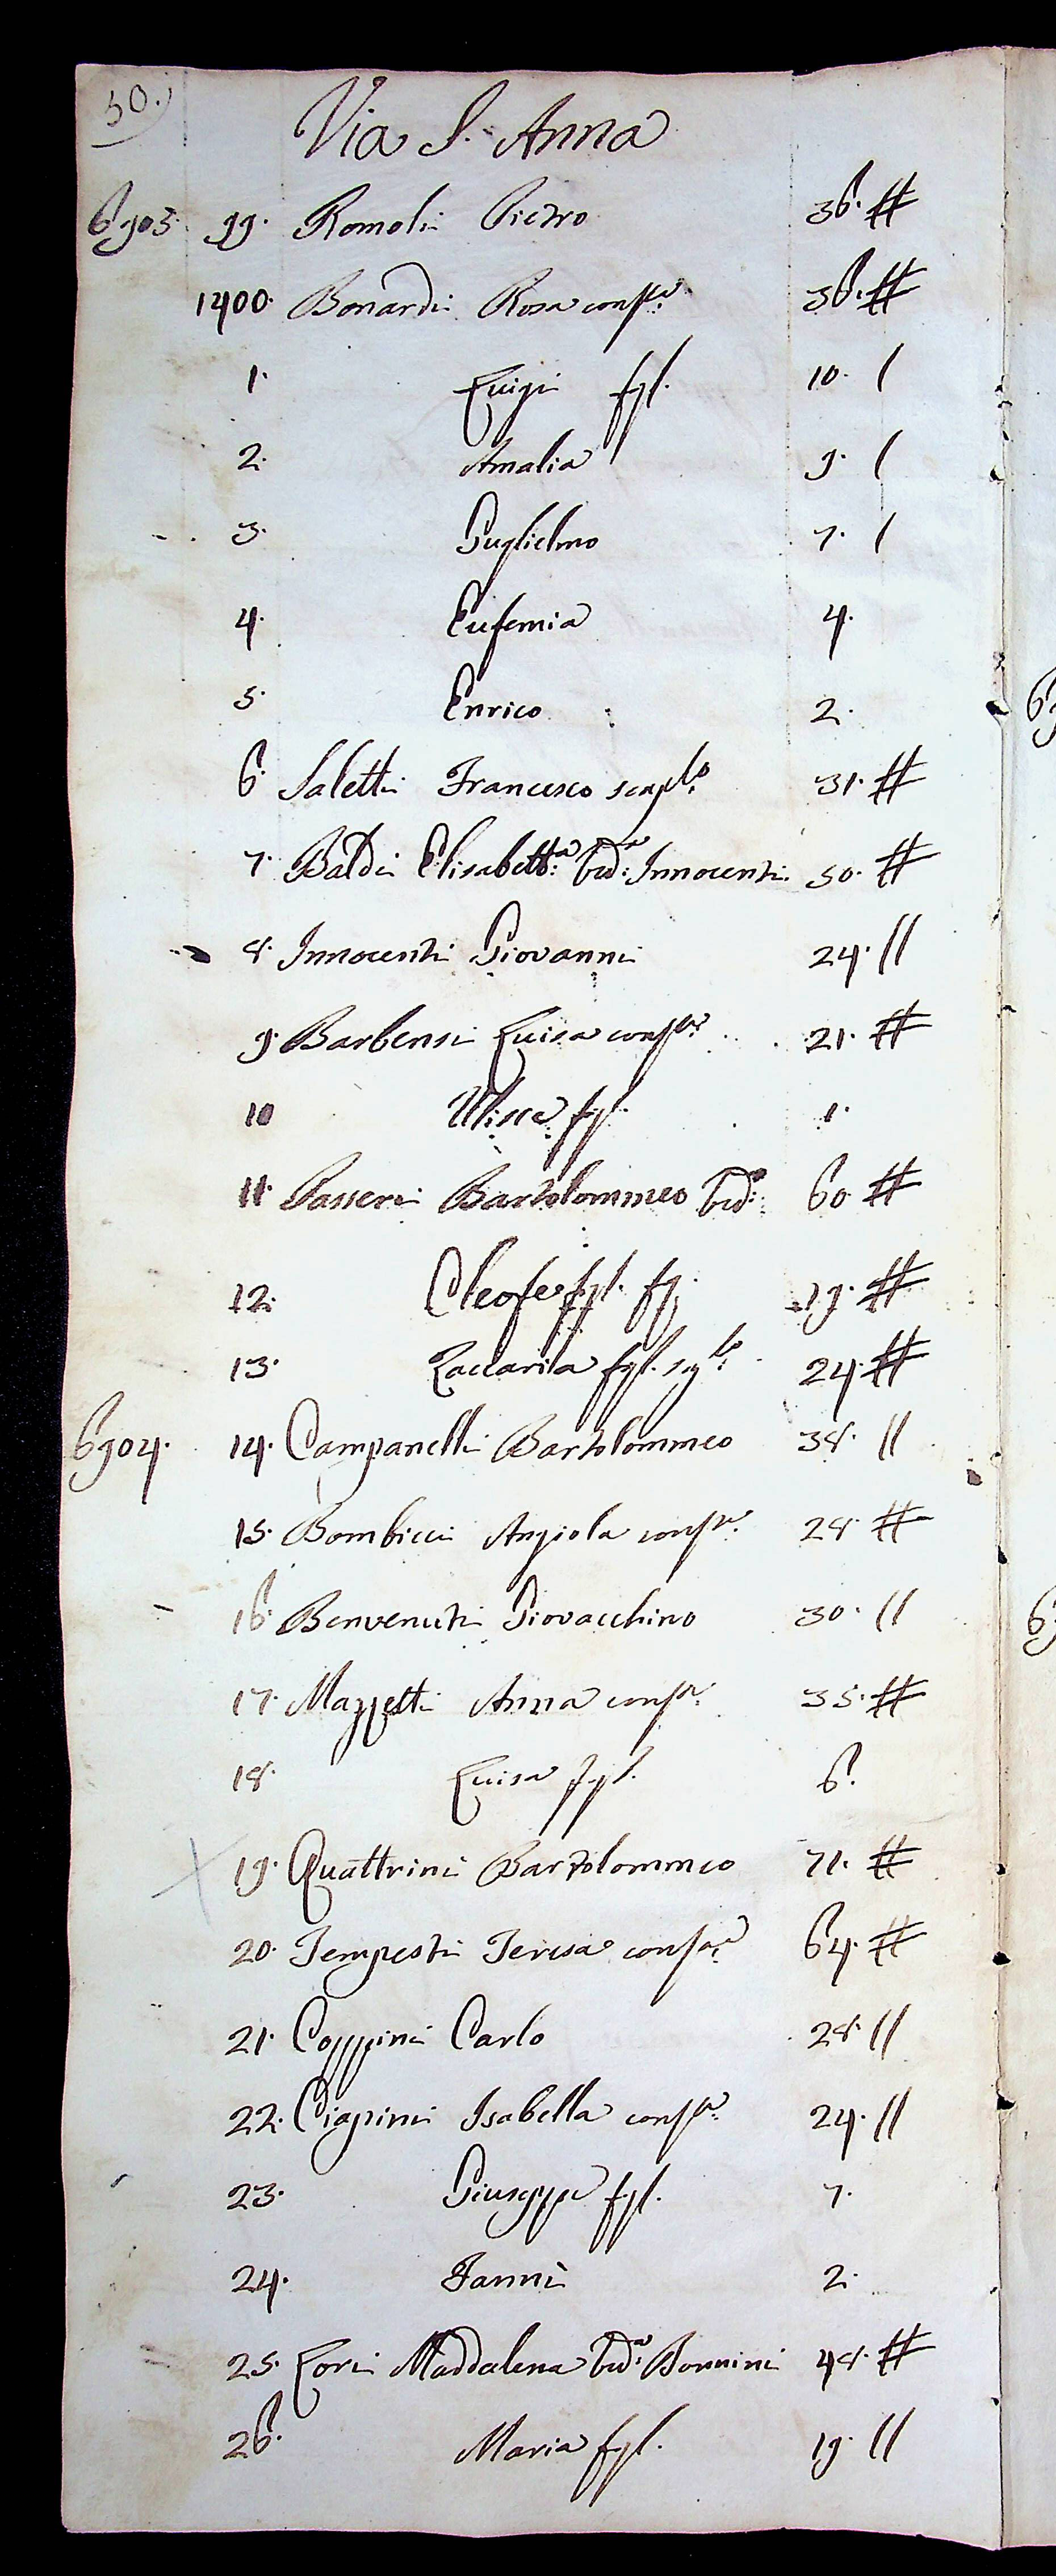 50.
Via S. Anna
6903. 99. Romoli Pietro 36. #
1400. Bonardi Rosa consta: 36. #
1. Luigi figl. 10. /
2. Amalia 9. /
3. Guglielmo 7. /
4. Eufemia 4.
5. Enrico 2.
6. Saletti Francesco scaplo: 31. #
7. Baldi Elisabetta: Veda: Innocenti 50. #
8. Innocenti Giovanni 24. //
9. Barbensi Luisa consta: 21. #
10 Ulisse figl. 1.
11. Passeri Bartolommeo Vedo: 60 #
12. Cleofe figl. 19. #
13. Zaccaria figl. sglo: 24. #
6904. 14. Campanelli Bartolommeo 38. //
15. Bombicci Angiola consa: 28. #
16. Benvenuti Giovacchino 30. //
17. Mazzetti Anna consa: 35. #
18. Luisa figl. 6.
19. Quattrini Bartolommeo 71. #
20. Tempesti Teresa consa: 64. #
21. Coppini Carlo 28. //
22. Ciapini Isabella consa: 24. //
23. Giuseppe figl. 7.
24. Fannì 2.
25. Lori Maddalena Veda: Bonnini 48. #
26. Maria figl. 19. //